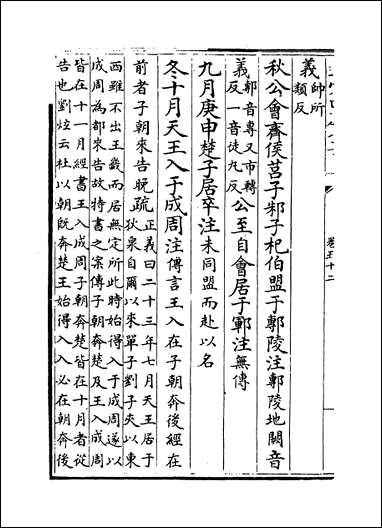 卷五十二
義帥所
類反
秋公會齊侯莒子邾子杞伯盟于鄟陵注鄟陵地闕音
義鄟音專又市轉
反一音徒丸反公至自會居于鄆注無傳
九月庚申楚子居卒注未同盟而赴以名
冬十月天王入于成周注傳言王入在子朝奔後經在
前者子朝來告晚疏正義曰二十三年七月天王居于
狄泉自爾以來單子劉子夾以東
西雖不出王畿而居無定所此時始得入于成周遂以
成周為都來告故特書之案傳子朝奔楚及王入成周
皆在十一月經書王入成周子朝奔楚皆在十月者從
告也劉炫云杜以朝既奔楚王始得入入必在朝奔後